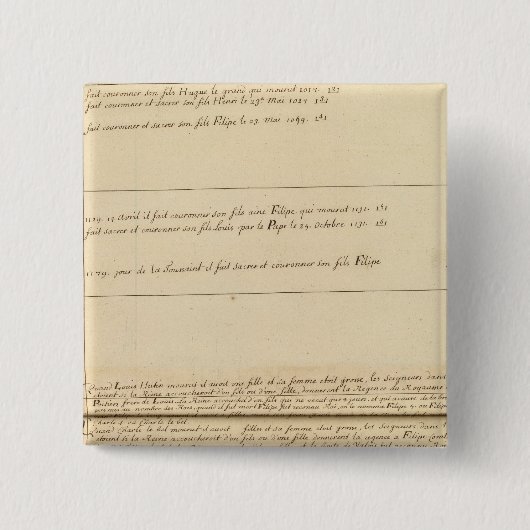 fait couronner son fils Hugue le grand qui mourut 1017. idj
fait couronner et sacrer son fils Henri le 23e Mai 1027 idj
fait couronner et sacrer son fils Filipe le 03. Mai 1099. idj
1129. 14 Avril il fait couronner son fils ainé Filipe qui mourut 1131. idj
fait sacrer et couronner son fils Louis par le Pape le 25. Octobre 1131. idj
1179. jour de la Toussaint il fait sacrer et couronner son fils Filipe
Quand Louis Hutin mourut il avoit une fille et sa femme etoit grosse, les Seigneurs dans
la Reine accoucheroit d'un fils ou d'une fille, donnerent la Regence du Royaume
frere de Louis. La Reine accoucha d'un fils qui ne vecut que 8 jours, et qui
au nombre des Rois, quand il fut mort Filipe fut reconnu Roi, on le nomma Filipe 5. ou Filip
Charle 4 ou Charle le bel
Quand Charle le bel mourut il avoit fille et sa femme etoit grosse, les Seigneurs dans
la Reine accoucheroit d'un fils ou d'une fille donnerent la regence a Filipe